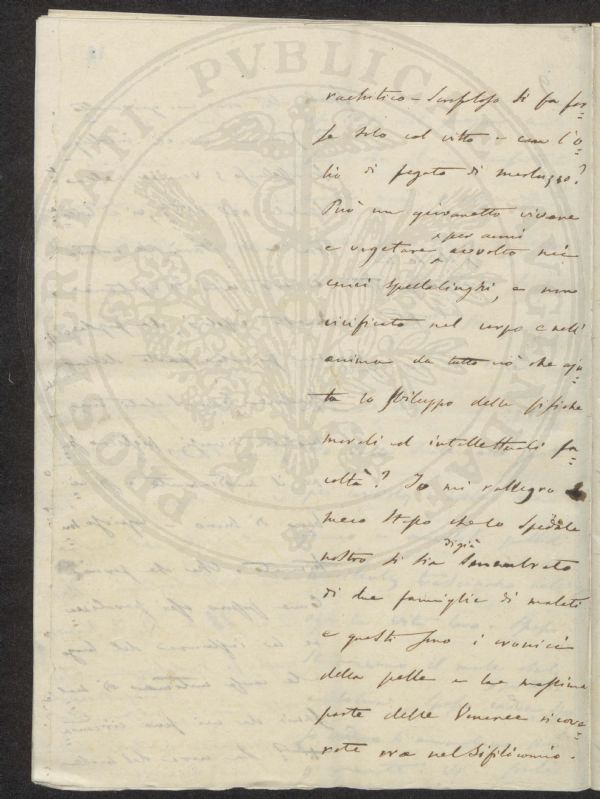 PROSPERITATI PVBLICAE AVGENDAE
rachitico-scrofoloso si fa for=
se solo col vitto - con l'o=
lio di fegato di merluzzo?
Può un giovanetto vivere
e vegetare per anni avvolto nei
cenci spedalinghi, e non
vivificato nel corpo e nell'
anima da tutto ciò che aju=
ta lo sviluppo delle fisiche
morali ed intellettuali fa=
coltà? Io mi rallegro
meco stesso che lo Spedale
nostro si sia digià smembrato
di due famiglie di malati
e questi sono i cronici
della pelle e la massima
parte delle Veneree ricove=
rate ora nel Sifilicomio.